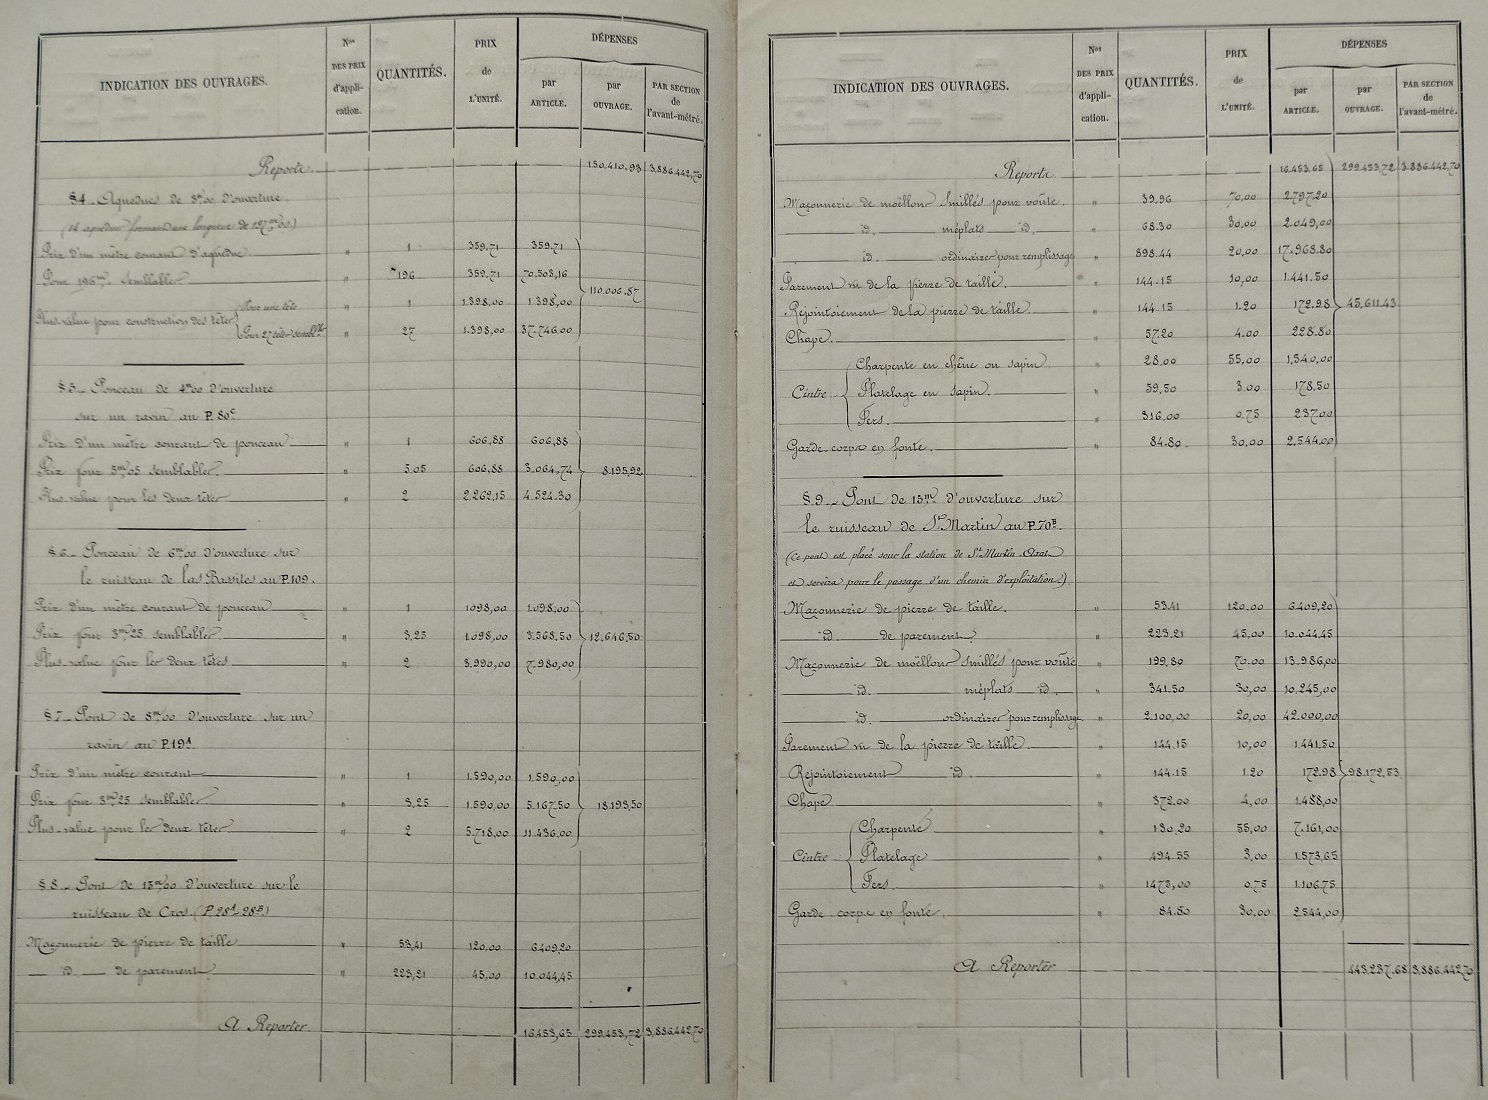 INDICATION DES OUVRAGES. Nos DES PRIX d'appli- cation. QUANTITÉS. PRIX de L'UNITÉ. DÉPENSES par ARTICLE. par OUVRAGE. PAR SECTION de l'avant-métré.
Reports 150.410,93 3.886.442,70
§4_ Aqueducs de 3m00 d'ouverture.
(14 aqueducs formant une longueur de 197m00)
Prix d'un mètre courant d'aqueduc " 1 359,71 359,71
Pour 196m semblables " 196 359,71 70.503,16
110.006,87
Plus-value pour construction des têtes Pour une tête " 1 1.398,00 1.398,00
Pour 27 têtes sembles " 27 1.398,00 37.746,00
§5_ Ponceau de 4m00 d'ouverture
sur un ravin au P. 80c
Prix d'un mètre courant de ponceau " 1 606,88 606,88
Prix pour 5m05 semblables " 5,05 606,88 3.064,74 8.195,92
Plus-value pour les deux têtes " 2 2.262,15 4.524,30
§6_ Ponceau de 6m00 d'ouverture sur
le ruisseau de las Bassites au P.109.
Prix d'un mètre courant de ponceau " 1 1098,00 1.098,00
Prix pour 3m25 semblables " 3,25 1.098,00 3.568,50 12.646,50
Plus-value pour les deux têtes " 2 3.990,00 7.980,00
§7_ Pont de 8m00 d'ouverture sur un
ravin au P.19A
Prix d'un mètre courant " 1 1.590,00 1.590,00
Prix pour 3m25 semblables " 3,25 1.590,00 5.167,50 18.193,50
Plus-value pour les deux têtes " 2 5.718,00 11.436,00
§8_ Pont de 15m00 d'ouverture sur le
ruisseau de Cros (P.28A 28B)
Maçonnerie de pierre de taille " 53,41 120,00 6.409,20
_ id _ de parement " 223,21 45,00 10.044,45
A Reporter 16.453,65 299.453,72 3.886.442,70
INDICATION DES OUVRAGES. Nos DES PRIX d'appli- cation. QUANTITÉS. PRIX de L'UNITÉ. DÉPENSES par ARTICLE. par OUVRAGE. PAR SECTION de l'avant-métré.
Reports 16.453,65 299.453,72 3.886.442,70
Maçonnerie de moëllons smillés pour voûte. " 39.96 70,00 2.797,20
id. méplats id. " 68.30 30.00 2.049,00
id. ordinaires pour remplissage " 898.44 20,00 17.968.80
Parement vu de la pierre de taille. " 144.15 10,00 1.441.50
Rejointoiement de la pierre de taille. " 144.15 1.20 172.98 45.611.43
Chape. " 57.20 4.00 228.80
Charpente en chêne ou sapin " 28.00 55,00 1,540,00
Cintre Platelage en sapin. " 59,50 3.00 178.50
Fers. " 316.00 0.75 237.00
Garde-corps en fonte. " 84.80 30,00 2.544.00
§9_ Pont de 15m d'ouverture sur
le ruisseau de St Martin au P.70B.
(Ce pont est placé sous la station de St Martin
et servira pour le passage d'un chemin d'exploitation.)
Maçonnerie de pierre de taille. " 53.41 120.00 6.409,20
id. de parement " 223,21 45,00 10.044,45
Maçonnerie de moëllons smillés pour voûte " 199.80 70.00 13.986,00
id. méplats id. " 341.50 30,00 10.245,00
id. ordinaires pour remplissage " 2.100,00 20,00 42.000,00
Parement vu de la pierre de taille. " 144.15 10,00 1.441,50
Rejointoiement id. " 144.15 1.20 172.98 98.172,53
Chape " 372.00 4,00 1.488,00
Charpente " 130,20 55,00 7.161,00
Cintre Platelage " 494.55 3,00 1.573,65
Fers. " 1473,00 0,75 1.106,75
Garde-corps en fonte. " 84.80 30.00 2.544,00
A Reporter 443.237.68 3.886.442,70